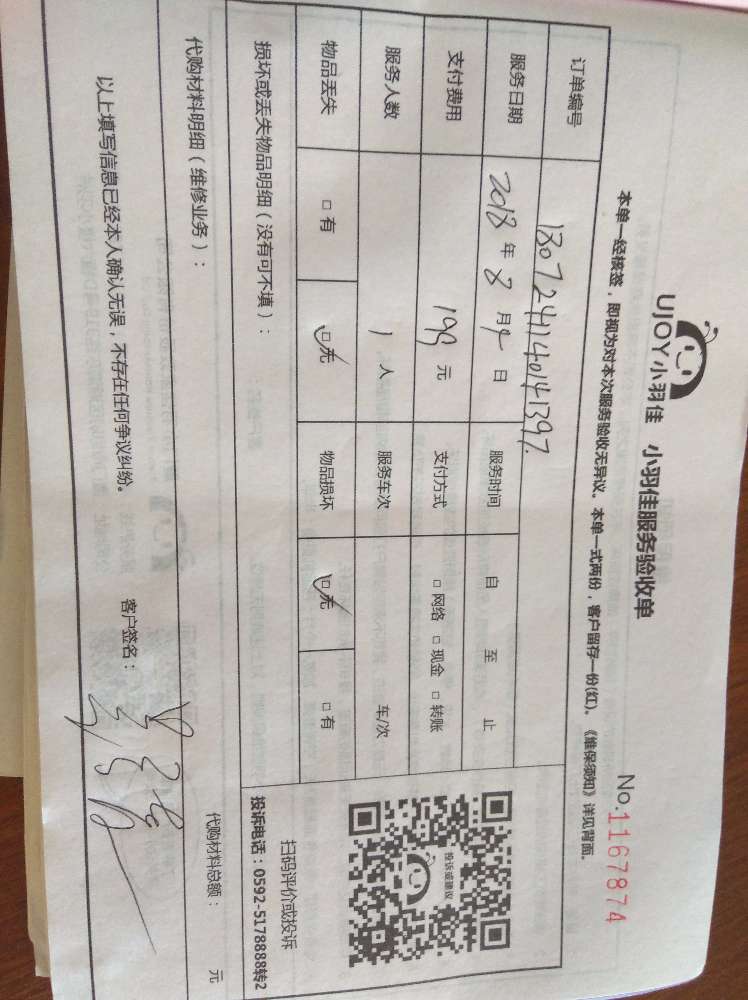 UJOY小羽佳 小羽佳服务验收单 No.1167874
本单一经核签，即视为对本次服务验收无异议。本单一式两份，客户留存一份(红)。《维保须知》详见背面。
订单编号 1807241140141397
服务日期 2018年8月9日 服务时间 自 至 止
支付费用 199元 支付方式 □网络 □现金 □转账
服务人数 1人 服务车次 车/次
物品丢失 □有 □无 物品损坏 □无 □有
投诉或建议
扫码评价或投诉
投诉电话：0592-5178888转2
损坏或丢失物品明细（没有可不填）：
代购材料明细（维修业务）： 代购材料总额： 元
以上填写信息已经本人确认无误，不存在任何争议纠纷。 客户签名：